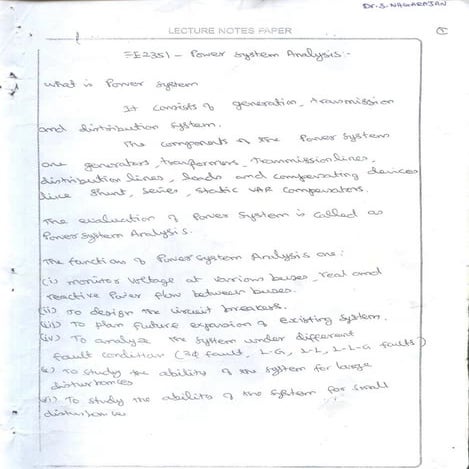 Dr. S. NAGARAJAN
LECTURE NOTES PAPER
①
EE2351 - Power System Analysis:-
What is Power System
It consists of generation, transmission
and distribution system.
The components of the Power System
are generators, transformers, Transmission lines,
distribution lines, loads and compensating devices
like shunt, series, static VAR compensators.
The evaluation of Power System is called as
Power System Analysis.
The functions of Power System Analysis are:
(i) monitor voltage at various buses, real and
reactive Power flow between buses.
(ii) To design the circuit breakers.
(iii) To plan future expansion of existing system.
(iv) To analyze the system under different
fault condition (3φ fault, L-G, L-L, L-L-G faults)
(v) To study the ability of the system for large
disturbances
(vi) To study the ability of the system for small
disturbance